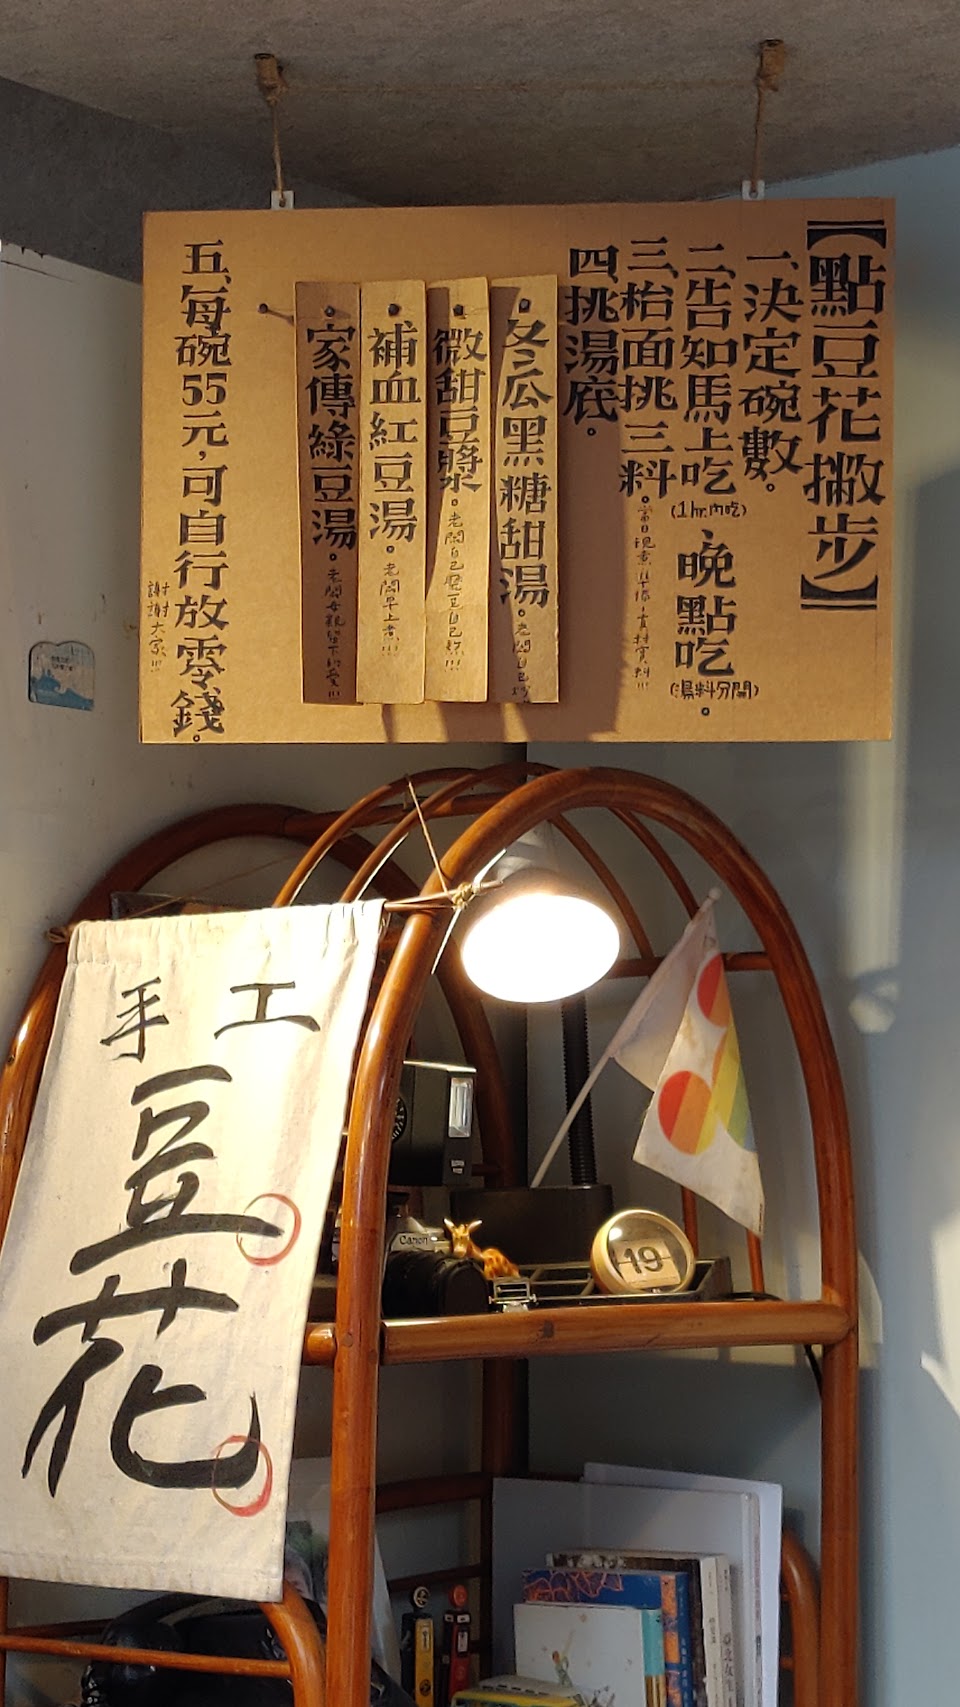 【點豆花撇步】
一、決定碗數。
二、告知馬上吃(1hr.內吃)、晚點吃(湯料分開)。
三、枱面挑三料。當日現煮!!下修,真材實料!!!
四、挑湯底。
冬瓜黑糖甜湯。老闆自己炒
微甜豆漿。老闆自己磨豆自己煮!!!
補血紅豆湯。老闆早上煮!!!
家傳綠豆湯。老闆母親留下的愛!!!
五、每碗55元,可自行放零錢。
謝謝大家!!!
手工
豆花
Canon
19